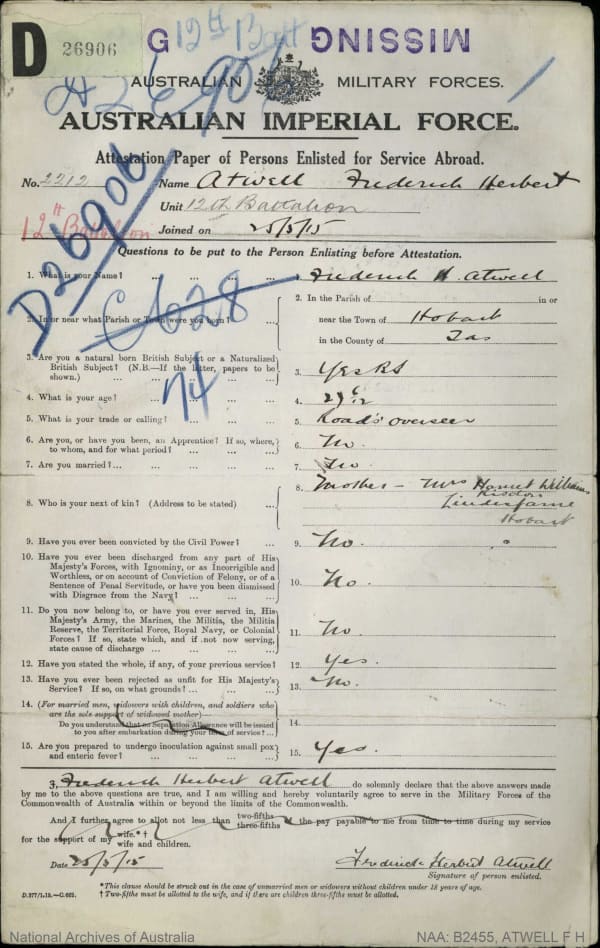 D 26906
G 12th Batt MISSING
D26906
AUSTRALIAN MILITARY FORCES.
AUSTRALIAN IMPERIAL FORCE.
Attestation Paper of Persons Enlisted for Service Abroad.
No. 2212 Name Atwell Frederick Herbert
Unit 12th Battalion
12th Battalion
Joined on 25/3/15
D26906
C628
74
Questions to be put to the Person Enlisting before Attestation.
1. What is your Name? ... ... ... 1. Frederick H. Atwell
2. In or near what Parish or Town were you born? ...
2. In the Parish of in or
near the Town of Hobart
in the County of Tas
3. Are you a natural born British Subject or a Naturalized
British Subject? (N.B.—If the latter, papers to be
shown.) ... ... ... ... ...
3. Yes
4. What is your age? ... ... ... 4. 29 6/12
5. What is your trade or calling? ... ... ... 5. Roads overseer
6. Are you, or have you been, an Apprentice? If so, where,
to whom, and for what period? ... ... ...
6. No.
7. Are you married? ... ... ... ... 7. No
8. Who is your next of kin? (Address to be stated) ...
8. Mother – Mrs Harriet Williams
Risdon
Lindisfarne
Hobart
9. Have you ever been convicted by the Civil Power? ... 9. No.
10. Have you ever been discharged from any part of His
Majesty's Forces, with Ignominy, or as Incorrigible and
Worthless, or on account of Conviction of Felony, or of a
Sentence of Penal Servitude, or have you been dismissed
with Disgrace from the Navy? ... ... ...
10. No.
11. Do you now belong to, or have you ever served in, His
Majesty's Army, the Marines, the Militia, the Militia
Reserve, the Territorial Force, Royal Navy, or Colonial
Forces? If so, state which, and if not now serving,
state cause of discharge ... ... ... ...
11. No.
12. Have you stated the whole, if any, of your previous service? 12. Yes.
13. Have you ever been rejected as unfit for His Majesty's
Service? If so, on what grounds? ... ... ...
13. No.
14. (For married men, widowers with children, and soldiers who
are the sole support of widowed mother)—
Do you understand that no Separation Allowance will be issued
to you after embarkation during your term of service? ...
14.
15. Are you prepared to undergo inoculation against small pox
and enteric fever? ... ... ... ...
15. Yes.
I, Frederick Herbert Atwell do solemnly declare that the above answers made
by me to the above questions are true, and I am willing and hereby voluntarily agree to serve in the Military Forces of the
Commonwealth of Australia within or beyond the limits of the Commonwealth.
And I further agree to allot not less than two-fifths three-fifths of the pay payable to me from time to time during my service
for the support of my wife.*† wife and children.
Date 25/3/15 Frederick Herbert Atwell
Signature of person enlisted.
*This clause should be struck out in the case of unmarried men or widowers without children under 18 years of age.
D.377/1.15.—C.602. † Two-fifths must be allotted to the wife, and if there are children three-fifths must be allotted.
National Archives of Australia NAA: B2455, ATWELL F H